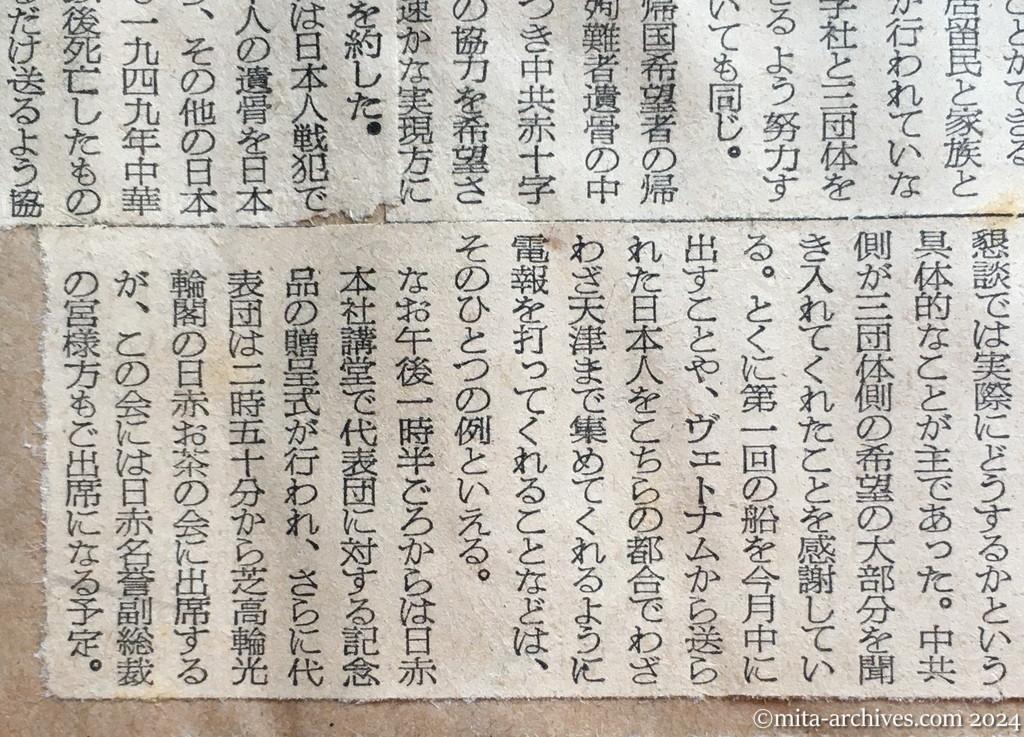 ことができる
居留民と家族と
が行われていな
字社と三団体を
きる よう努力す
いても同じ。
帰国希望者の帰
殉難者遺骨の中
つき中共赤十字
の協力を希望さ
速かな実現方に
を約した。
は日本人戦犯で
人の遺骨を日本
、その他の日本
一九四九年中華
後死亡したもの
だけ送るよう協
懇談では実際にどうするかという
具体的なことが主であった。中共
側が三団体側の希望の大部分を聞
き入れてくれたことを感謝してい
る。とくに第一回の船を今月中に
出すことや、ヴェトナムから送ら
れた日本人をこちらの都合でわざ
わざ天津まで集めてくれるように
電報を打ってくれることなどは、
そのひとつの例といえる。
なお午後一時半ごろからは日赤
本社講堂で代表団に対する記念
品の贈呈式が行われ、さらに代
表団は二時五十分から芝高輪光
輪閣の日赤お茶の会に出席する
が、この会には日赤名誉副総裁
の宮様方もご出席になる予定。
©mita-archives.com 2024